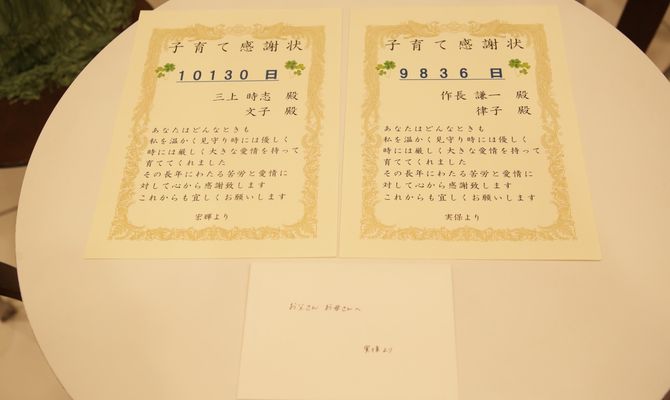 子育て感謝状
10130日
三上 時志 殿
文子 殿
あなたはどんなときも
私を温かく見守り時には優しく
時には厳しく大きな愛情を持って
育ててくれました
その長年にわたる苦労と愛情に
対して心から感謝致します
これからも宜しくお願いします
宏輝より
子育て感謝状
9836日
作長 謙一 殿
律子 殿
あなたはどんなときも
私を温かく見守り時には優しく
時には厳しく大きな愛情を持って
育ててくれました
その長年にわたる苦労と愛情に
対して心から感謝致します
これからも宜しくお願いします
実保より
お父さん お母さんへ
実保より